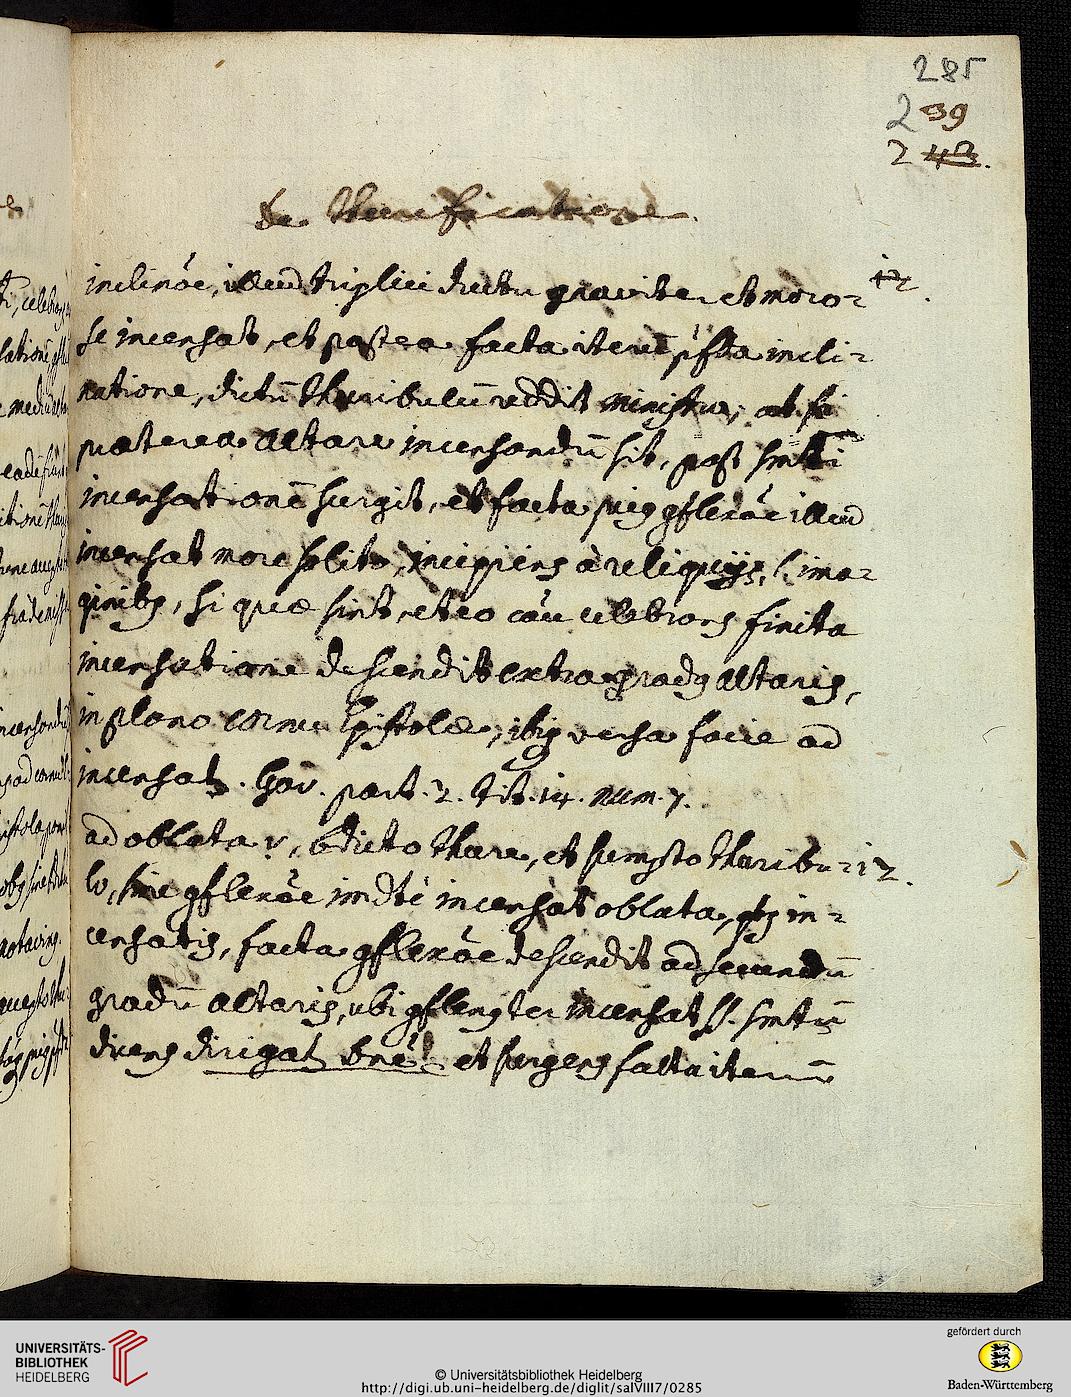 285
239
243.
de thurificatione.
inclinõe, illud triplici ductu graviter et moro=
se incensat, et postea facta iterũ pſda incli=
natione, dictũ thuribulũ reddit ministro, at si
præterea altare incensandũ sit, post smĩ
incensationẽ surgit, et facta gflexõe illud
incensat more solito, incipiens à reliquijs, l. ima=
ginibg, si quæ sint, et eo casu celebrans finita
incensatione descendit extra gradg altaris,
in plano cornu Epistolæ, ibig versa facie ad
incensat. Gav. part. 2. tit. 14. num. 7.
ad oblata v., bdicto thure, et sumpto thuribu= 12.
lo, sine gflexõe imdtè incensat oblata, qbg in=
censatis, facta gflexõe descendit ad secundũ
gradũ altaris, ubi gflexg ter incensat SS. smtũ
dicens dirigat. Dnẽ et surgens facta iterũ
UNIVERSITÄTS-
BIBLIOTHEK
HEIDELBERG
© Universitätsbibliothek Heidelberg
http://digi.ub.uni-heidelberg.de/diglit/salVIII7/0285
gefördert durch
Baden-Württemberg